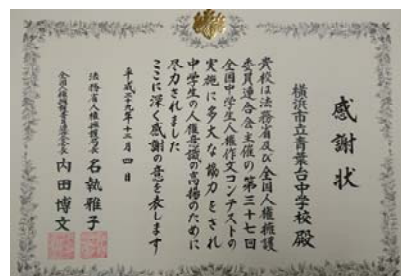 感謝状
横浜市立青葉台中学校 殿
貴校は法務省及び全国人権擁護
委員連合会主催の第三十七回
全国中学生人権作文コンテストの
実施に多大な協力をされ
中学生の人権意識の高揚のために
尽力されました
ここに深く感謝の意を表します
平成二十九年十二月四日
法務省人権擁護局長 名執雅子
全国人権擁護委員連合会会長 内田博文